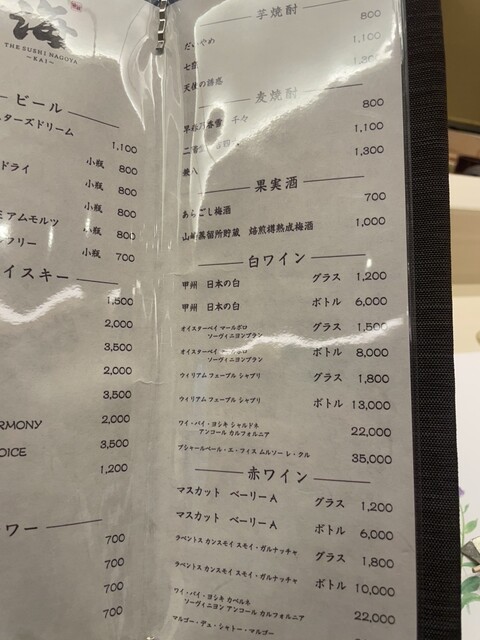 海
THE SUSHI NAGOYA
~KAI~
ビール
ターズドリーム
1,100
小瓶 800
ドライ
800
小瓶 800
ミアムモルツ
小瓶 800
フリー
小瓶 700
イスキー
1,500
2,000
3,500
2,000
3,500
ARMONY 2,000
OICE 3,500
1,200
ワー
700
700
700
700
芋焼酎
だいやめ 800
七窪 1,100
天使の誘惑 1,300
麦焼酎
千々 800
1,100
兼八 1,300
果実酒
あらごし梅酒 700
山崎蒸留所貯蔵 焙煎樽熟成梅酒 1,000
白ワイン
甲州 日本の白 グラス 1,200
甲州 日本の白 ボトル 6,000
オイスターベイ マールボロ
ソーヴィニヨンブラン グラス 1,500
オイスターベイ マールボロ
ソーヴィニヨンブラン ボトル 8,000
ウィリアム フェーブル シャブリ グラス 1,800
ウィリアム フェーブル シャブリ ボトル 13,000
ワイ・バイ・ヨシキ シャルドネ
アンコール カルフォルニア 22,000
ブシャールペール・エ・フィス ムルソー レ・クル 35,000
赤ワイン
マスカット ベーリーA グラス 1,200
マスカット ベーリーA ボトル 6,000
ラベントス カンスモイ スモイ・ガルナッチャ グラス 1,800
ラベントス カンスモイ スモイ・ガルナッチャ ボトル 10,000
ワイ・バイ・ヨシキ カベルネ
ソーヴィニヨン アンコール カルフォルニア 22,000
マルゴー・デュ・シャトー・マルゴー